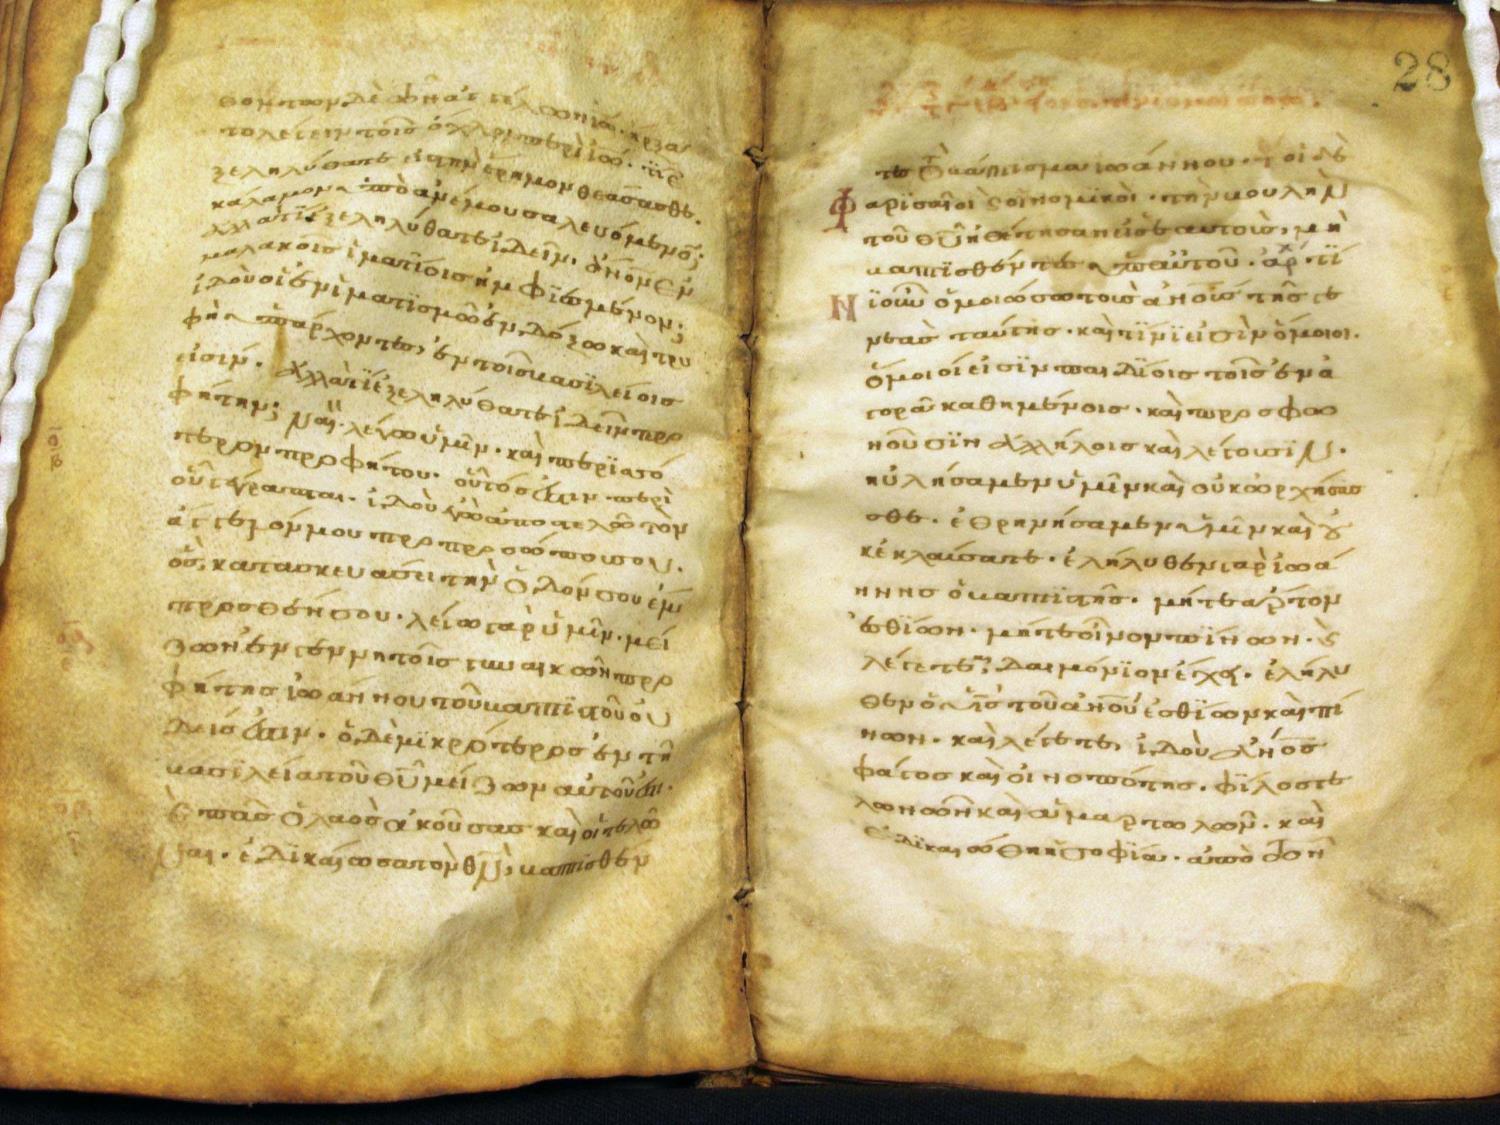 θόντων δὲ τῶν ἀγγέλων ἰω ἤρξα
το λέγειν τοῖς ὄχλοις περὶ ἰω· τί ἐ
ξεληλύθατε εἰς τὴν ἔρημον θεάσασθε·
κάλαμον ὑπὸ ἀνέμου σαλευόμενον;
ἀλλὰ τί ἐξεληλύθατε ἰδεῖν, ἄνον ἐν
μαλακοῖς ἱματίοις ἠμφϊεσμένον;
ἰδοὺ οἱ ἐν ἱματϊσμῶ ἐνδόξω καὶ τρυ
φῆ ὑπάρχοντες, ἐν τοῖς βασϊλείοις
εἰσιν. ἀλλὰ τί ἐξεληλύθατε ἰδεῖν προ
φήτην; ναὶ λέγω ὑμῖν· καὶ περϊσσό
τερον προφήτου· οὗτός ἐστιν περὶ
οὗ γέγραπται· ἰδοὺ ἐγὼ ἀποστελῶ τὸν
ἄγγελόν μου πρὸ προσώπου σου.
ὃς κατασκευάσει τὴν ὁδόν σου ἔμ
προσθέν σου· λέγω γὰρ ὑμῖν· μεί
ζων ἐν γεννητοῖς γυναικῶν προ
φήτης ἰωάννου τοῦ βαπτϊστοῦ οὐ
δείς ἐστιν· ὁ δὲ μϊκρότερος ἐν τῆ
βασϊλεία τοῦ θυ μείζων αὐτοῦ ἐστι·
καὶ πᾶς ὁ λαὸς ἀκούσας καὶ οἱ τελῶ
ναι· ἐδϊκαίωσαν τὸν θν, βαπτισθέν
28
τες τὸ βάπτισμα ἰωάννου· οἱ δὲ
φαρϊσαῖοι καὶ οἱ νομϊκοὶ· τὴν βουλὴν
τοῦ θυ ἠθέτησαν εἰς ἑαυτοὺς, μὴ
βαπτϊσθέντες ὑπ' αὐτοῦ· τίνι
οὖν ὁμοιώσω τοὺς ἀνους τῆς γε
νεᾶς ταύτης· καὶ τίνϊ εἰσὶν ὅμοιοι·
ὅμοιοι εἰσϊν παιδΐοις τοῖς ἐν ἀ
γορᾶ καθημένοις· καὶ προσφω
νοῦσϊν ἀλλήλοις καὶ λέγουσϊν·
ηὐλήσαμεν ὑμῖν καὶ οὐκ ὠρχήσασ
σθε· ἐθρηνήσαμεν ὑμῖν καὶ οὐ
κ ἐκλαύσατε· ἐλήλυθεν γὰρ ἰωά
ννης ὁ βαπτϊστὴς· μήτε ἄρτον
ἐσθίων· μήτε οἶνον πΐνων· καὶ
λέγετε, δαιμόνϊον ἔχει· ἐλήλυ
θεν ὁ υἱς τοῦ ανου ἐσθίων καὶ πί
νων· καὶ λέγετε, ἰδοὺ ανος
φάγος καὶ οἰνοπότης· φΐλος τε
λωνῶν καὶ ἁμαρτωλῶν· καὶ
ἐδϊκαιώθη ἡ σοφία· ἀπὸ